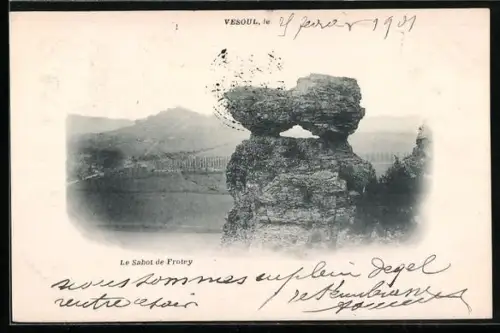 VESOUL, le 25 février 1901
Le Sabot de Frotey
nous sommes en plein degel
rentre ce soir